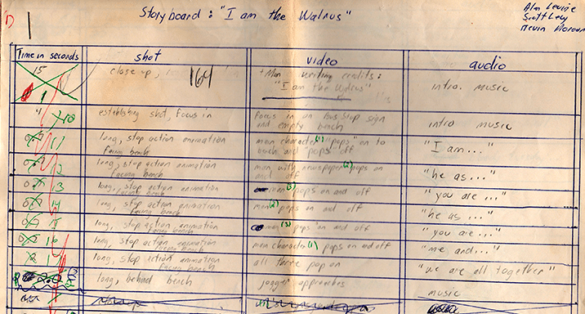 Storyboard: "I am the Walrus"
Alan Levine
Scott Levy
Kevin
1
Time in seconds shot video audio
15 close up, 164 writing credits: intro. music
"I am the Walrus"
establishing shot, focus in focus in on bus stop sign intro music
and empty bench
11 long, stop action animation man character (1) "pops" on to "I am..."
facing bench bench and "pops" off
12 long, stop action animation man with newspaper (2) pops "he as..."
facing bench on and off
13 long, stop action animation (3) pops on and off "you are..."
facing bench
14 long, stop action animation pops on and off "he as..."
facing bench
15 long, stop action animation (3) pops on and off "you are..."
facing bench
16 long, stop action animation man character (1) pops on and off "me and..."
facing bench
long, stop action animation all three pop on "we are all together"
facing bench
long, behind bench jogger approaches music